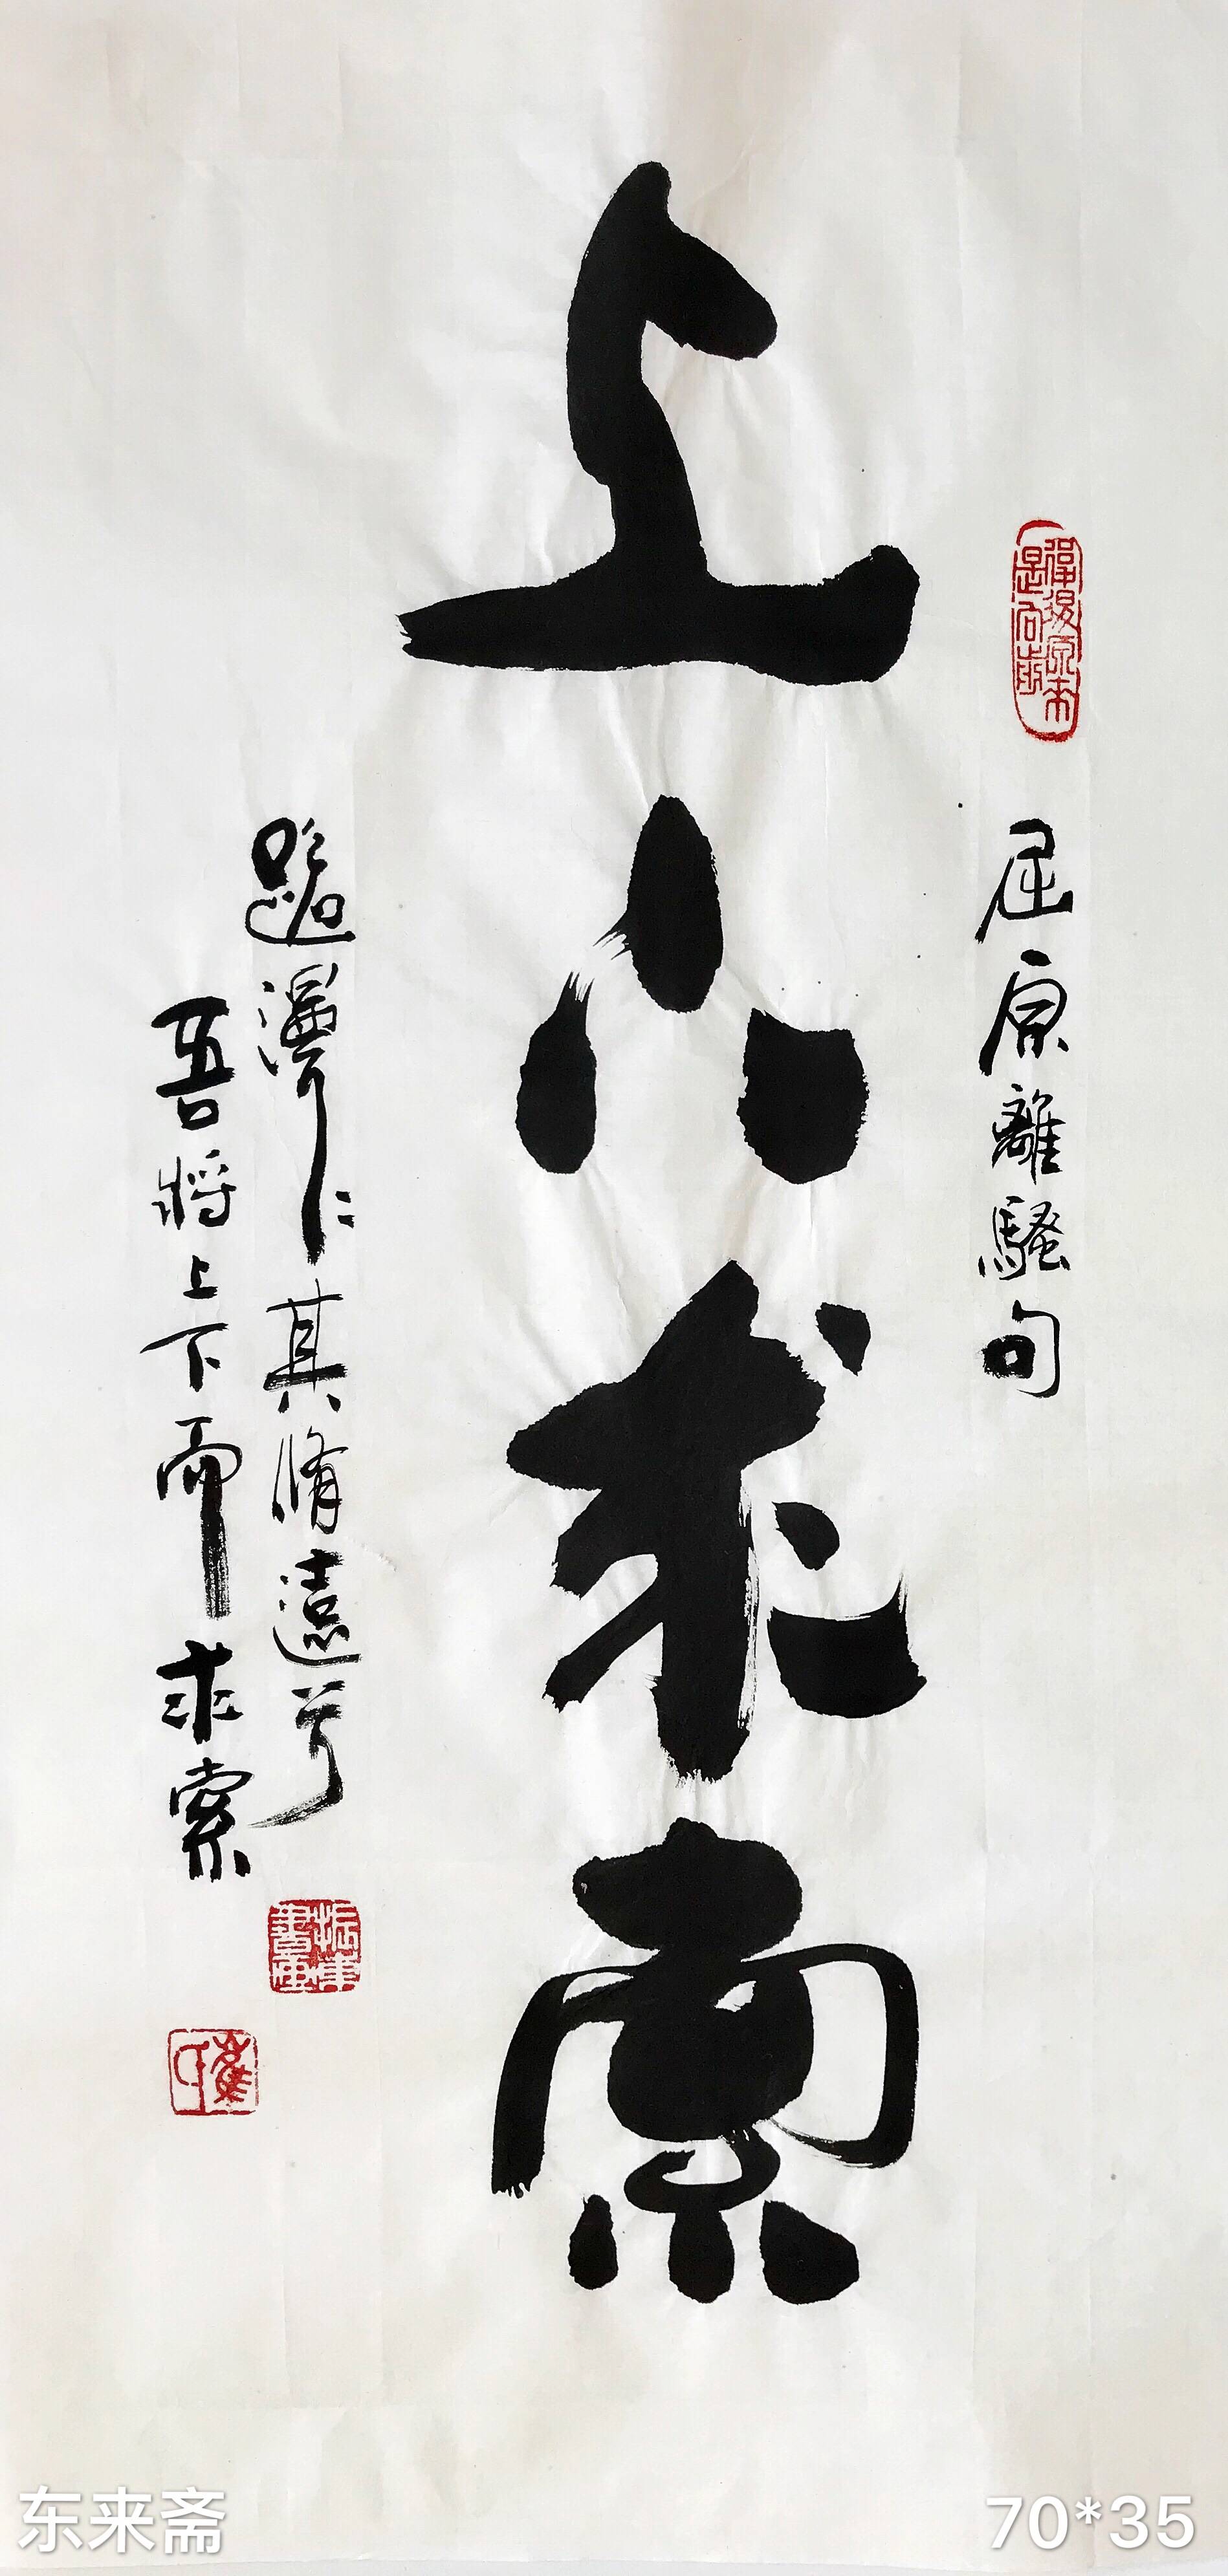 屈原離騷句
上下求索
路漫漫其脩遠兮
吾將上下而求索
东来斋
70*35